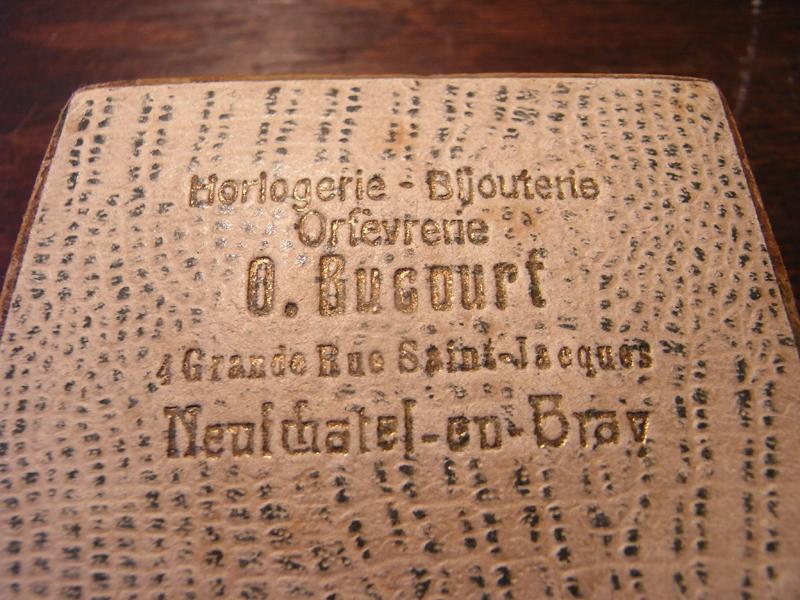 Horlogerie - Bijouterie
Orfèvrerie
O. Bucourt
4 Grande Rue Saint-Jacques
Neufchatel-en-Bray